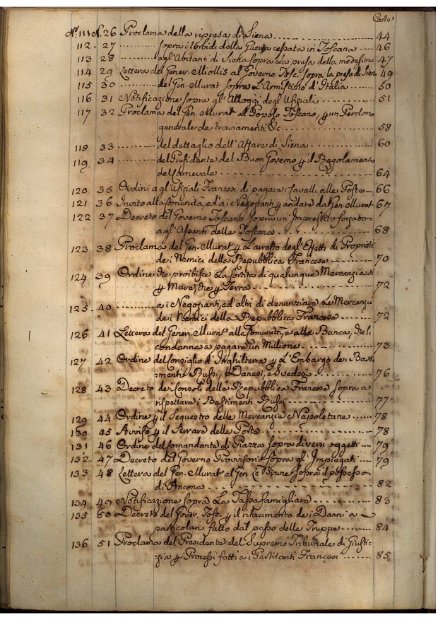 Carte
N.º 111 N. 26 Proclama della ripresa di Siena 44
112 - 27 sopra i torbidi della Guerra cessata in Toscana 46
113 28 agl'Abitanti di Siena sopra la presa della medesima 47
114 29 Lettera del Gener Miollis al Governo sopra la presa di Siena 49
115 30 del Gen Murat sopra l'Armistizio d'Italia 50
116 31 Notificazione sopra gl'Alloggi degl'Ufiziali 51
117 32 Proclama del Gen Murat al Popolo Toscano, y un Perdono
generale de traviamenti &c 58
118 33 del dettaglio dell'Affare di Siena 60
119 34 del Presidente del Buon Governo y il Regolamento
del Carnevale 64
120 35 Ordini agl'Ufiziali Francesi di pagare i Cavalli alle Poste 66
121 36 Invito alla Comunità, ed a i Negozianti y andare da Gen Murat 67
122 37 Decreto del Governo Toscano sopra un Imprestito forzato
agl'Assenti della Toscana 68
123 38 Proclama del Gen Murat y l'arresto degl'Effetti di Proprietà
de i Nemici della Repubblica Francese 70
124 39 Ordine che proibisce la sortita di qualunque Mercanzia sì
y Mare, che y Terra 72
125 40 a i Negozianti, ed altri di denunziare le Mercanzie
de i Nemici della Repubblica Francese 72
126 41 Lettera del Gener Murat alla Comunità, e alla Banca, che li
condanna a pagare un Milione 73
127 42 Ordine del Consiglio d'Inghilterra y l'Embargo de i Bastimenti
Russi, Danesi, e Svedesi 76
128 43 Decreto de Consoli della Repubblica Francese sopra a
rispettare i Bastimenti Russi 77
129 44 Ordine y il Sequestro delle Mercanzie Napoletane 78
130 45 Avviso y il Serrare delle Porte 78
131 46 Ordine del Comandante di Piazza sopra diversi oggetti 79
132 47 Decreto del Governo Provvisorio sopra gl'Impiegati 79
133 48 Lettera del Gen Murat al Gen Le Brune sopra il possesso
di Ancona 82
134 49 Notificazione sopra la Tassa famigliare 83
135 50 Decreto del Gov Tosc y il risarcimento de i Danni a
particolari fatto dal passo delle Truppe 84
136 51 Proclama del Presidente del Supremo Tribunale di Giustizia
y Processi fatti a i Partitanti Francesi 85